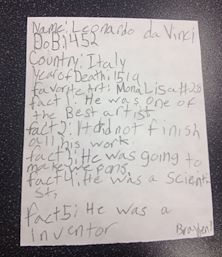 Name: Leonardo da Vinci
DoB: 1452
Country: Italy
year of Death: 1519
favorite Art: Mona Lisa #28
fact 1: He was one of
the Best artist.
fact 2: It did not finish
all his work.
fact 3: He was going to
make weapons.
fact 4: He was a scient
st,
fact 5: He was a
inventor